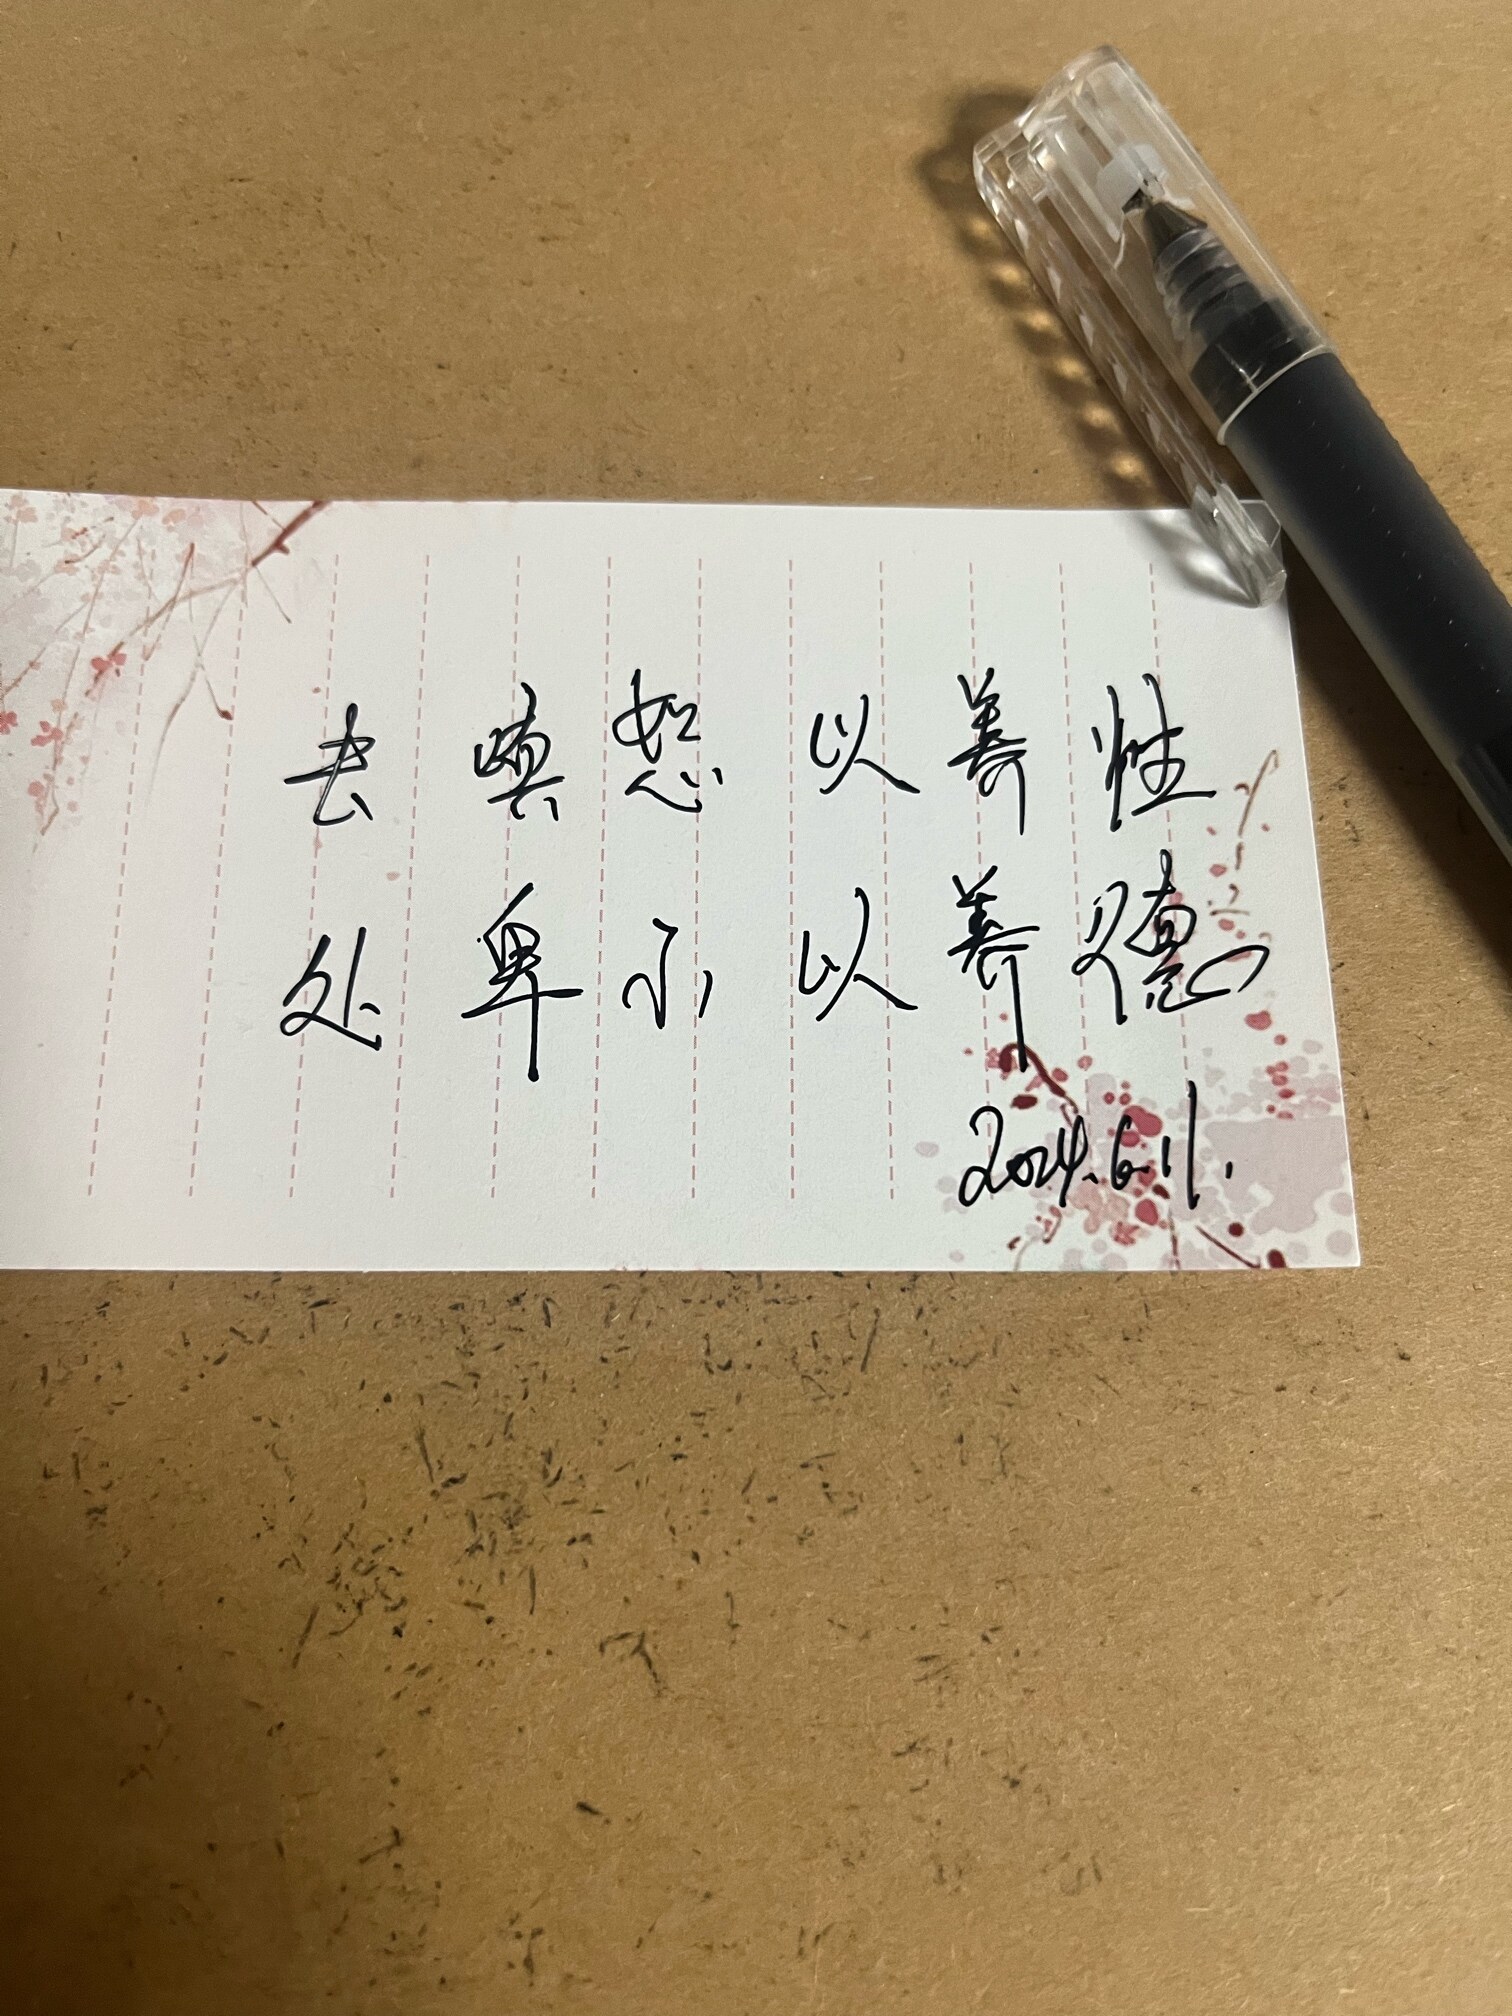 去嗔怒以养性
处卑小以养德
2024.6.11.